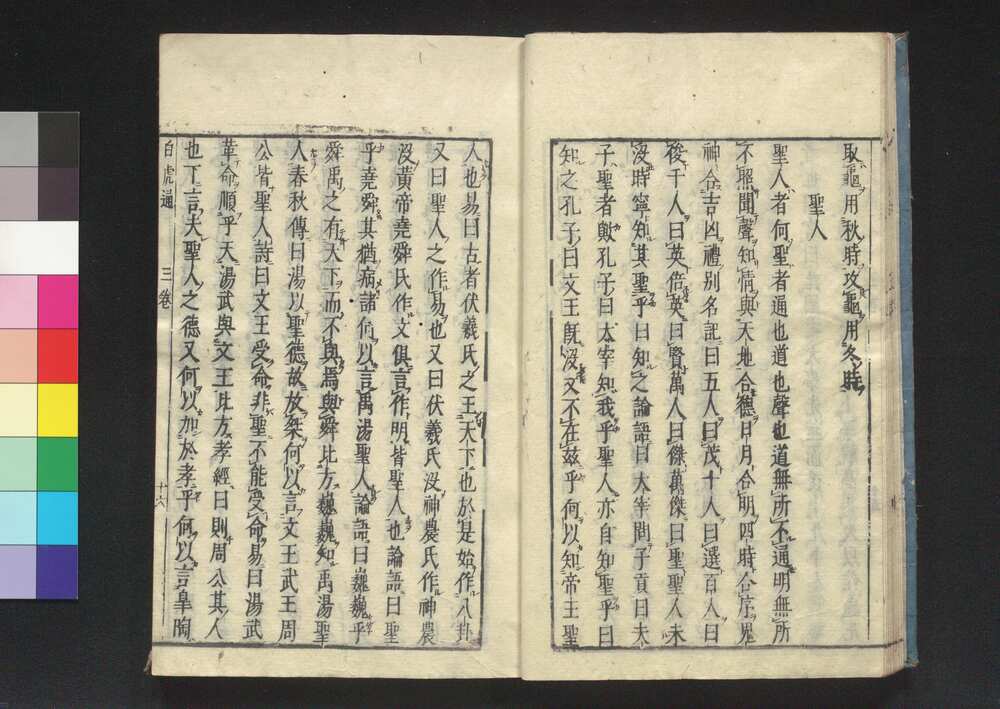 取龜用秋時攻龜用冬時
聖人
聖人者何聖者通也道也聲也道無所不通明無所
不照聞聲知情與天地合德日月合明四時合序鬼
神合吉凶禮別名記曰五人曰茂十人曰選百人曰
俊千人曰英倍英曰賢萬人曰傑萬傑曰聖聖人未
沒時寧知其聖乎曰知之論語曰太宰問子貢曰夫
子聖者歟孔子曰太宰知我乎聖人亦自知聖乎曰
知之孔子曰文王旣沒文不在茲乎何以知帝王聖
人也易曰古者伏羲氏之王天下也於是始作八卦
又曰聖人之作易也又曰伏羲氏沒神農氏作神農
沒黃帝堯舜氏作文俱言作明皆聖人也論語曰聖
乎堯舜其猶病諸何以言禹湯聖人論語曰巍巍乎
舜禹之有天下而不與焉與舜比方巍巍知禹湯聖
人春秋傳曰湯以聖德故放桀何以言文王武王周
公皆聖人詩曰文王受命非聖不能受命易曰湯武
革命順乎天湯武與文王比方孝經曰則周公其人
也下言夫聖人之德又何以加於孝乎何以言皐陶
白虎通 三卷 十六